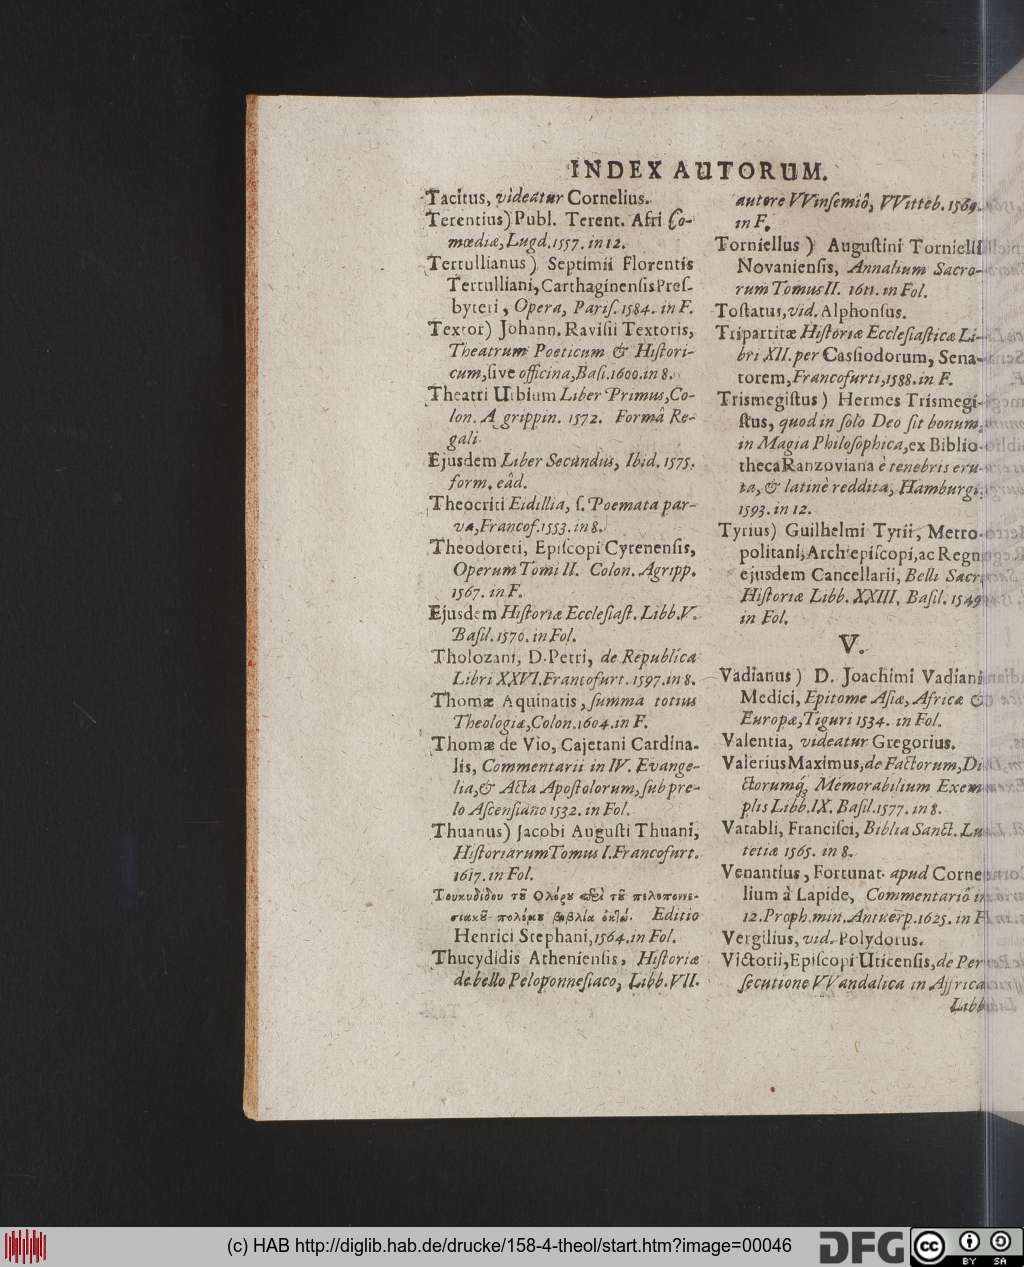 INDEX AUTORUM.
Tacitus, videatur Cornelius.
Terentius) Publ. Terent. Afri Co-
mœdiæ, Lugd. 1557. in 12.
Tertullianus) Septimii Florentis
Tertulliani, Carthaginensis Pres-
byteri, Opera, Paris. 1584. in F.
Textor) Johann. Ravisii Textoris,
Theatrum Poeticum & Histori-
cum, sive officina, Basi. 1600. in 8.
Theatri Urbium Liber Primus, Co-
lon. Agrippin. 1572. Formâ Re-
gali
Ejusdem Liber Secundus, Ibid. 1575.
form. eâd.
Theocriti Eidillia, s. Poemata par-
va, Francof. 1553. in 8.
Theodoreti, Episcopi Cyrenensis,
Operum Tomi II. Colon. Agripp.
1567. in F.
Ejusdem Historiæ Ecclesiast. Libb. V.
Basil. 1570. in Fol.
Tholozani, D. Petri, de Republica
Libri XXVI. Francofurt. 1597. in 8.
Thomæ Aquinatis, summa totius
Theologiæ, Colon. 1604. in F.
Thomæ de Vio, Cajetani Cardina-
lis, Commentarii in IV. Evange-
lia, & Acta Apostolorum, sub pre-
lo Ascensiano 1532. in Fol.
Thuanus) Jacobi Augusti Thuani,
Historiarum Tomus I. Francofurt.
1617. in Fol.
Editio
Henrici Stephani, 1564. in Fol.
Thucydidis Atheniensis, Historiæ
de bello Peloponnesiaco, Libb. VII.
autore VVinsemiô, VVitteb. 1569.
in F.
Torniellus) Augustini Tornielli
Novaniensis, Annalium Sacro-
rum Tomus II. 1611. in Fol.
Tostatus, vid. Alphonsus.
Tripartitæ Historiæ Ecclesiasticæ Li-
bri XII. per Cassiodorum, Sena-
torem, Francofurti, 1588. in F.
Trismegistus) Hermes Trismegi-
stus, quod in solo Deo sit bonum,
in Magia Philosophica, ex Biblio-
theca Ranzoviana è tenebris eru-
ta, & latinè reddita, Hamburgi,
1593. in 12.
Tyrius) Guilhelmi Tyrii, Metro-
politani, Archiepiscopi, ac Regni
ejusdem Cancellarii, Belli Sacri
Historiæ Libb. XXIII, Basil. 1549
in Fol.
V.
Vadianus) D. Joachimi Vadiani
Medici, Epitome Asiæ, Africæ &
Europæ, Tiguri 1534. in Fol.
Valentia, videatur Gregorius.
Valerius Maximus, de Factorum, Di
ctorumq; Memorabilium Exem
plis Libb. IX. Basil. 1577. in 8.
Vatabli, Francisci, Biblia Sanct. Lu
tetiæ 1565. in 8.
Venantius, Fortunat. apud Corne
lium à Lapide, Commentariô in
12. Proph. min. Antuerp. 1625. in F
Vergilius, vid. Polydorus.
Victorii, Episcopi Uticensis, de Per
secutione VVandalica in Affrica
Libb
(c) HAB http://diglib.hab.de/drucke/158-4-theol/start.htm?image=00046
DFG
cc BY SA